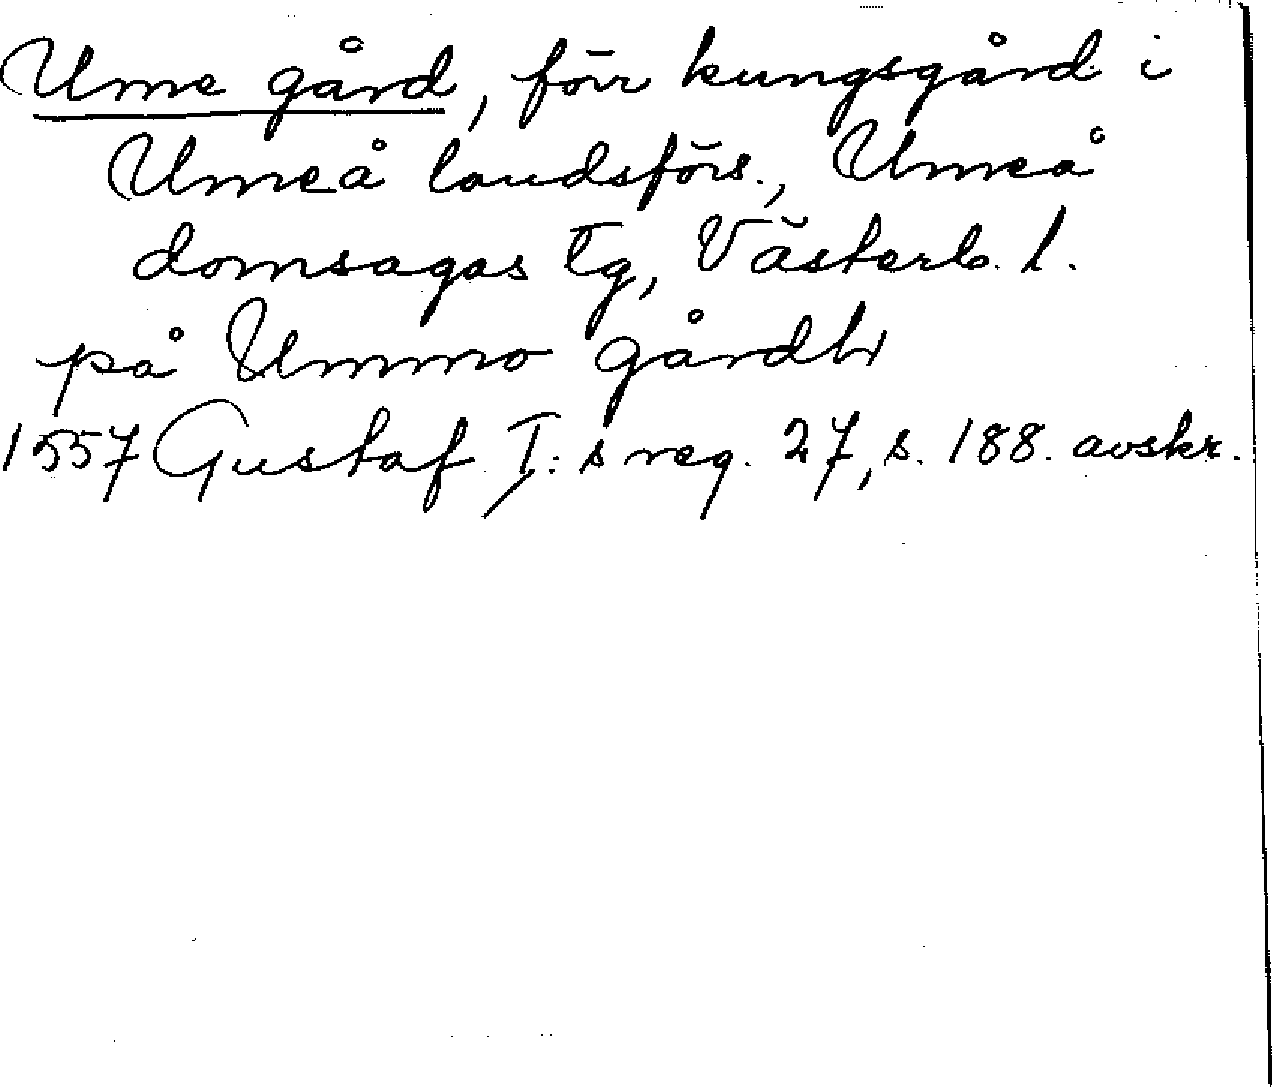 Ume gård, förr kungsgård i
Umeå landsförs., Umeå
domsagas tg, Västerb. l.
på Ummo gårdh
1557 Gustaf I:s reg. 27, s. 188. avskr.